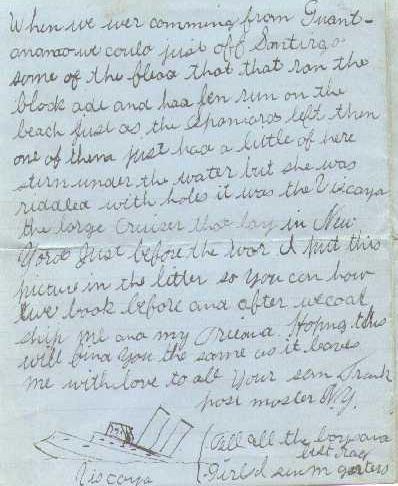 When we wer comming from Guant-
anamo we could just off Santirgo
some of the fleaa that that ran the
block ade and had ben run on the
beach just as the Spaniards left them
one of them just had a little of here
stern under the water but she was
ridaled with holes it was the Viscaya
the large Cruiser tha lay in New
York Just before the war I put this
picture in the litter so you can how
we look before and after we coal
ship me and my Friend. Hoping this
will find you the same as it leaves
me with love to all Your son Frank
post master N.Y.
Viscaya
Tell all the boys and
girls I send my